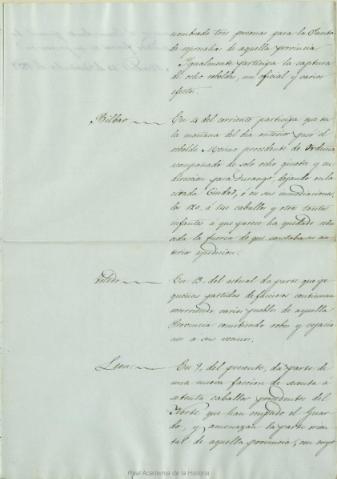 nombrado tres personas para la Junta
de agravios de aquella provincia
Igualmente participa la captura
de ocho rebeldes, un oficial y varios
efectos.
Bilbao En 4 del corriente participa que en
la mañana del dia anterior pasó el
rebelde Merino procedente de Orduña
acompañado de solo ocho ginetes y en
direccion para Durango, dejando en la
citada Ciudad, ó en sus inmediaciones,
los 120, ó tres caballos y otros tantos
infantes á que parece ha quedado redu
cida la fuerza de que constaba su an
terior espedicion.
Toledo En 13. del actual da parte que pe
queñas partidas de facciosos continuan
recorriendo varios pueblos de aquella
Provincia cometiendo robos y
á sus vecinos.
Leon En 9, del presente, da parte de
una nueva faccion de sesenta á
setenta caballos procedentes del
Norte que han
y amenazan la parte orien
tal de aquella provincia, en cuyo
Real Academia de la Historia